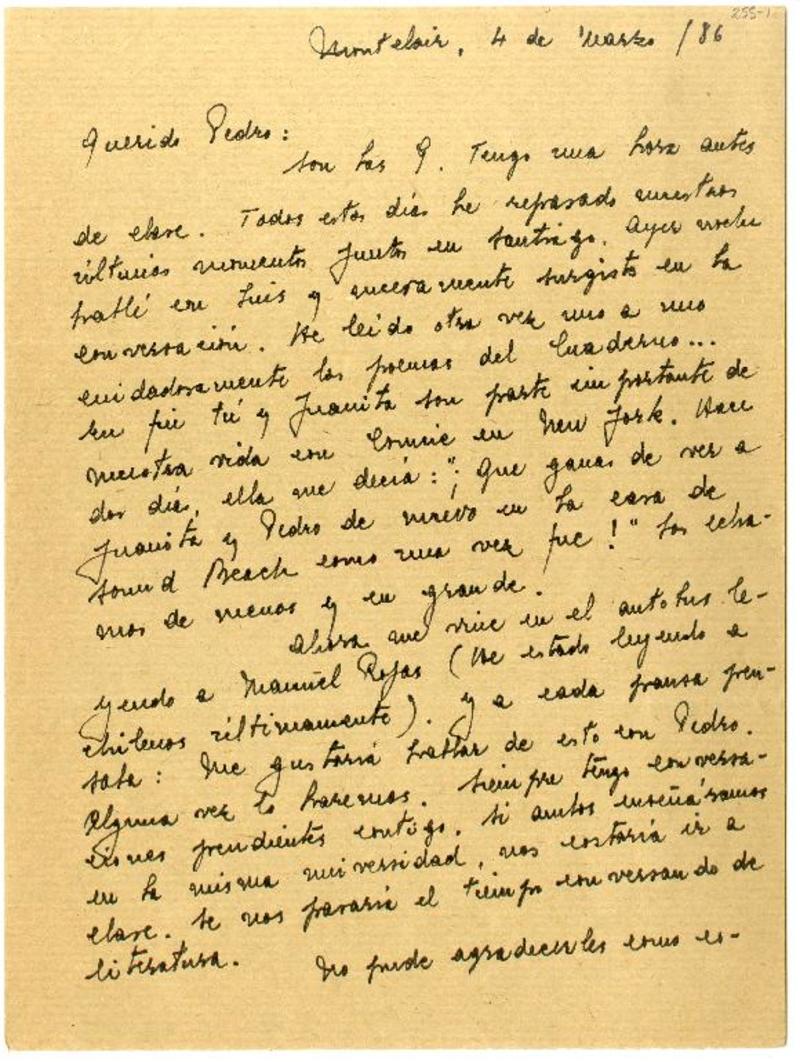 255-1
Montclair, 4 de Marzo /86
Querido Pedro:
Son las 9. Tengo una hora antes
de clase. Todos estos días he repasado nuestros
últimos momentos juntos en Santiago. Ayer noche
hablé con Luis y nuevamente surgiste en la
conversación. He leído otra vez uno a uno
cuidadosamente los poemas del Cuaderno...
En fin tú y Juanita son parte importante de
nuestra vida con Connie en New York. Hace
dos días, ella me decía: "¡Que ganas de ver a
Juanita y Pedro de nuevo en la casa de
Sound Beach como una vez fue!" Los echa-
mos de menos y en grande.
Ahora me vine en el autobus le-
yendo a Manuel Rojas (He estado leyendo a
chilenos últimamente). Y a cada pausa pen-
saba: Me gustaría hablar de esto con Pedro.
Alguna vez lo haremos. Siempre tengo conversa-
ciones pendientes contigo. Si ambos enseñáramos
en la misma universidad, nos costaría ir a
clase. Se nos pasaría el tiempo conversando de
literatura.
No pude agradecerles como co-